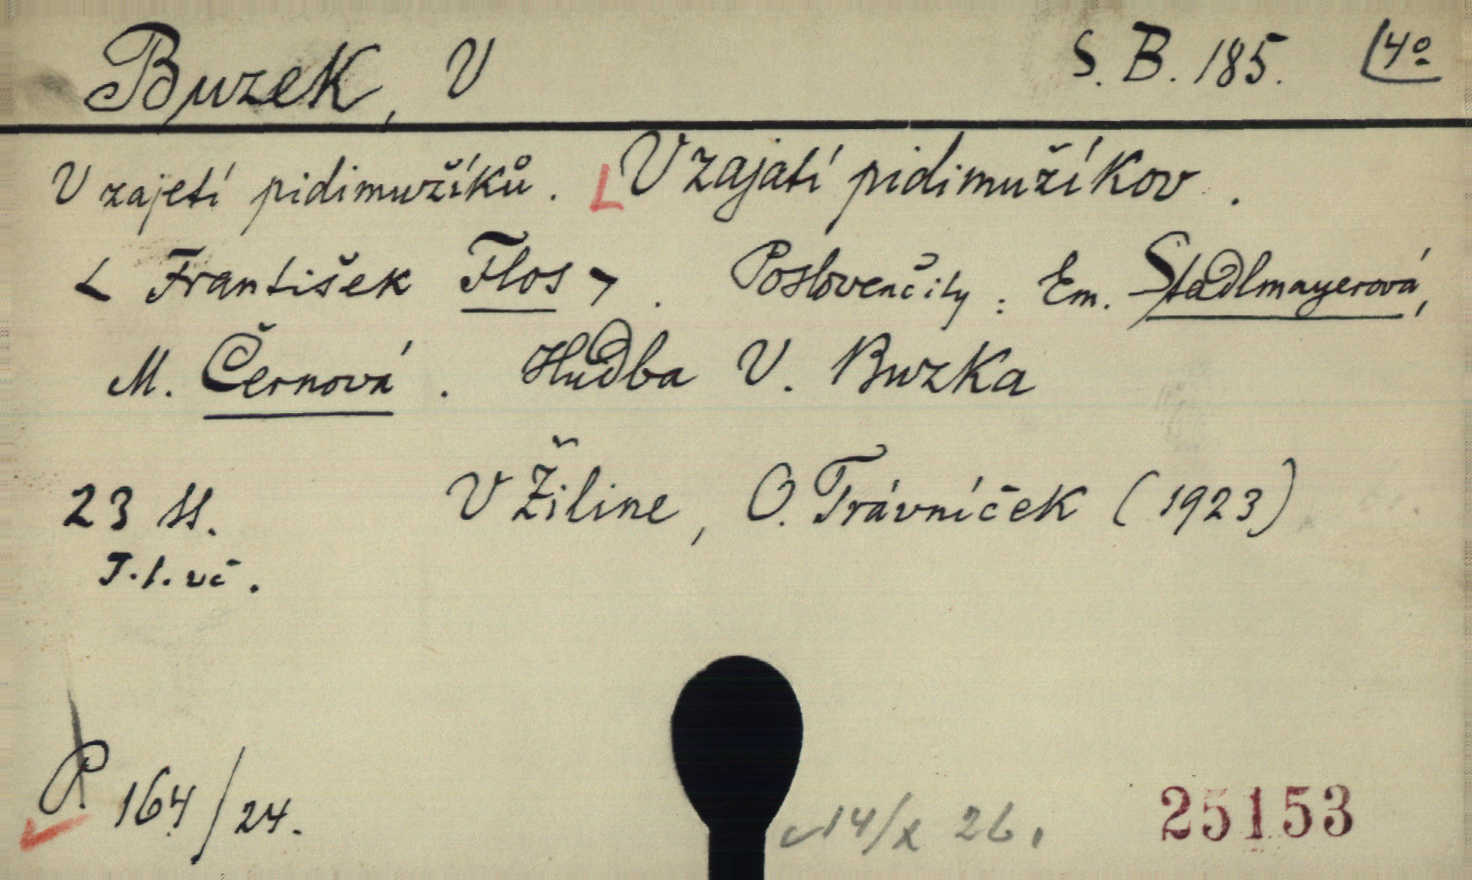 Buzek, V S. B. 185. 4º
V zajetí pidimužíků. V zajatí pidimužíkov.
František Flos. Poslovenčily: Em. Stadlmayerová,
M. Černová. Hudba V. Buzka
23 ss. V Žiline, O. Trávníček (1923)
T. l. vč.
P 164/24. 14/X 26. 25153